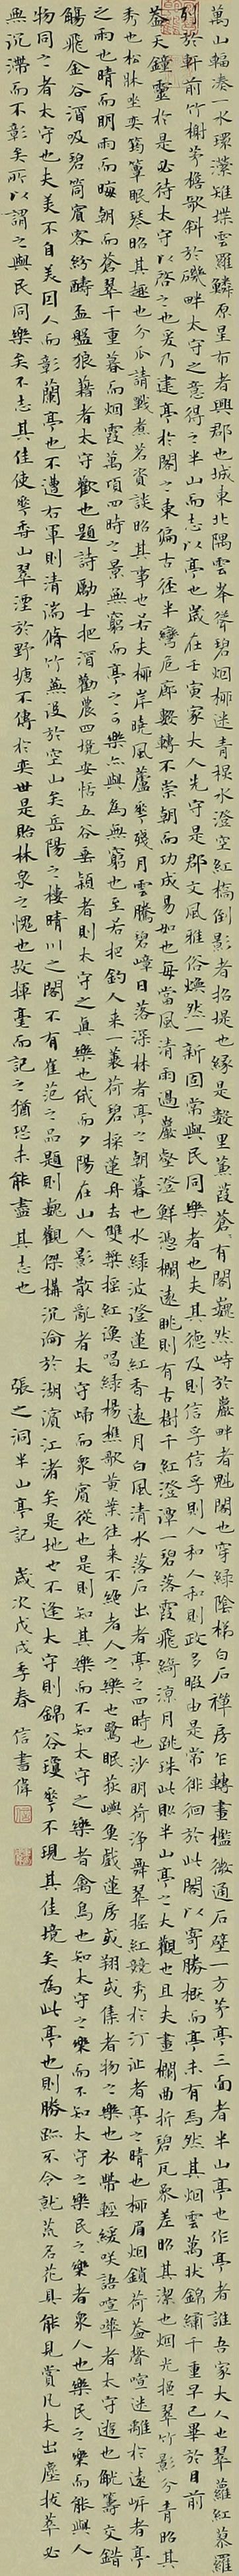 萬山輻湊一水環瀠雉堞雲羅鱗原星布者興郡也城東北隅雲峯聳碧烟柳迷青秧水澄空紅橋倒影者招堤也緣是數里蒹葭蒼蒼有閣巍然峙於巖畔者魁閣也穿綠陰梯白石禪房乍轉畫檻微通石壁一方茅亭三面者半山亭也作亭者誰吾家大人也翠蘿紅蓼羅
列於軒前竹榭茅檐欹斜於磯畔太守之意得之半山而志以亭也歲在壬寅家大人先守是郡文風雅俗煥然一新固常與民同樂者也夫其德及則信孚信孚則人和人和則政多暇由是常徘徊於此閣以寄勝概而亭未有焉然其烟雲萬狀錦繡千重早已畢於目前
蓋天鍾靈於是必待太守以啓之也爰乃建亭於閣之東偏古徑半彎危廊數轉不崇朝而功成易如也每當風清雨過巖壑澄鮮憑欄遠眺則有古樹千紅澄潭一碧落霞飛綺涼月跳珠此則半山亭之大觀也且夫畫欄曲折碧瓦參差昭其潔也烟光挹翠竹影分青昭其
秀也松牀坐奕筠簟眠琴昭其趣也分瓜請戰煮茗資談昭其事也若夫柳岸曉風蘆花殘月雲騰碧嶂日落深林者亭之朝暮也水綠波澄蓮紅香遠月白風清水落石出者亭之四時也沙明荷淨舞翠搖紅競秀於汀沚者亭之晴也柳眉烟鎖荷蓋聲喧迷離於遠岸者亭
之雨也晴而明雨而晦朝而蒼翠千重暮而烟霞萬頃四時之景無窮而亭之可樂亦與為無窮也至若把釣人來一蓑荷碧採蓮舟去雙槳搖紅漁唱綠楊樵歌黃葉往來不絕者人之樂也鷺眠荻嶼魚戲蓮房或翔或集者物之樂也衣帶輕緩笑語喧嘩者太守遊也觥籌交錯
觴飛金谷酒吸碧筒賓客紛酬盃盤狼藉者太守歡也題詩勵士把酒勸農四境安恬五谷垂穎者則太守之真樂也俄而夕陽在山人影散亂者太守歸而衆賓從也是則知其樂而不知太守之樂者禽鳥也知太守之樂而不知太守之樂民之樂者衆人也樂民之樂而能與人
物同之者太守也夫美不自美因人而彰蘭亭也不遭右軍則清湍脩竹蕪沒於空山矣岳陽之樓晴川之閣不有崔范之品題則巍觀傑構沉淪於湖濱江渚矣是地也不逢太守則錦谷瓊花不現其佳境矣為此亭也則勝跡不令就荒名花具能見賞凡夫出塵拔萃必
無沉滯而不彰矣所以謂之與民同樂矣不志其佳使花香山翠湮於野塘不傳於奕世是貽林泉之愧也故揮毫而記之猶恐未能盡其志也 張之洞半山亭記 歲次戊戌季春 信書偉